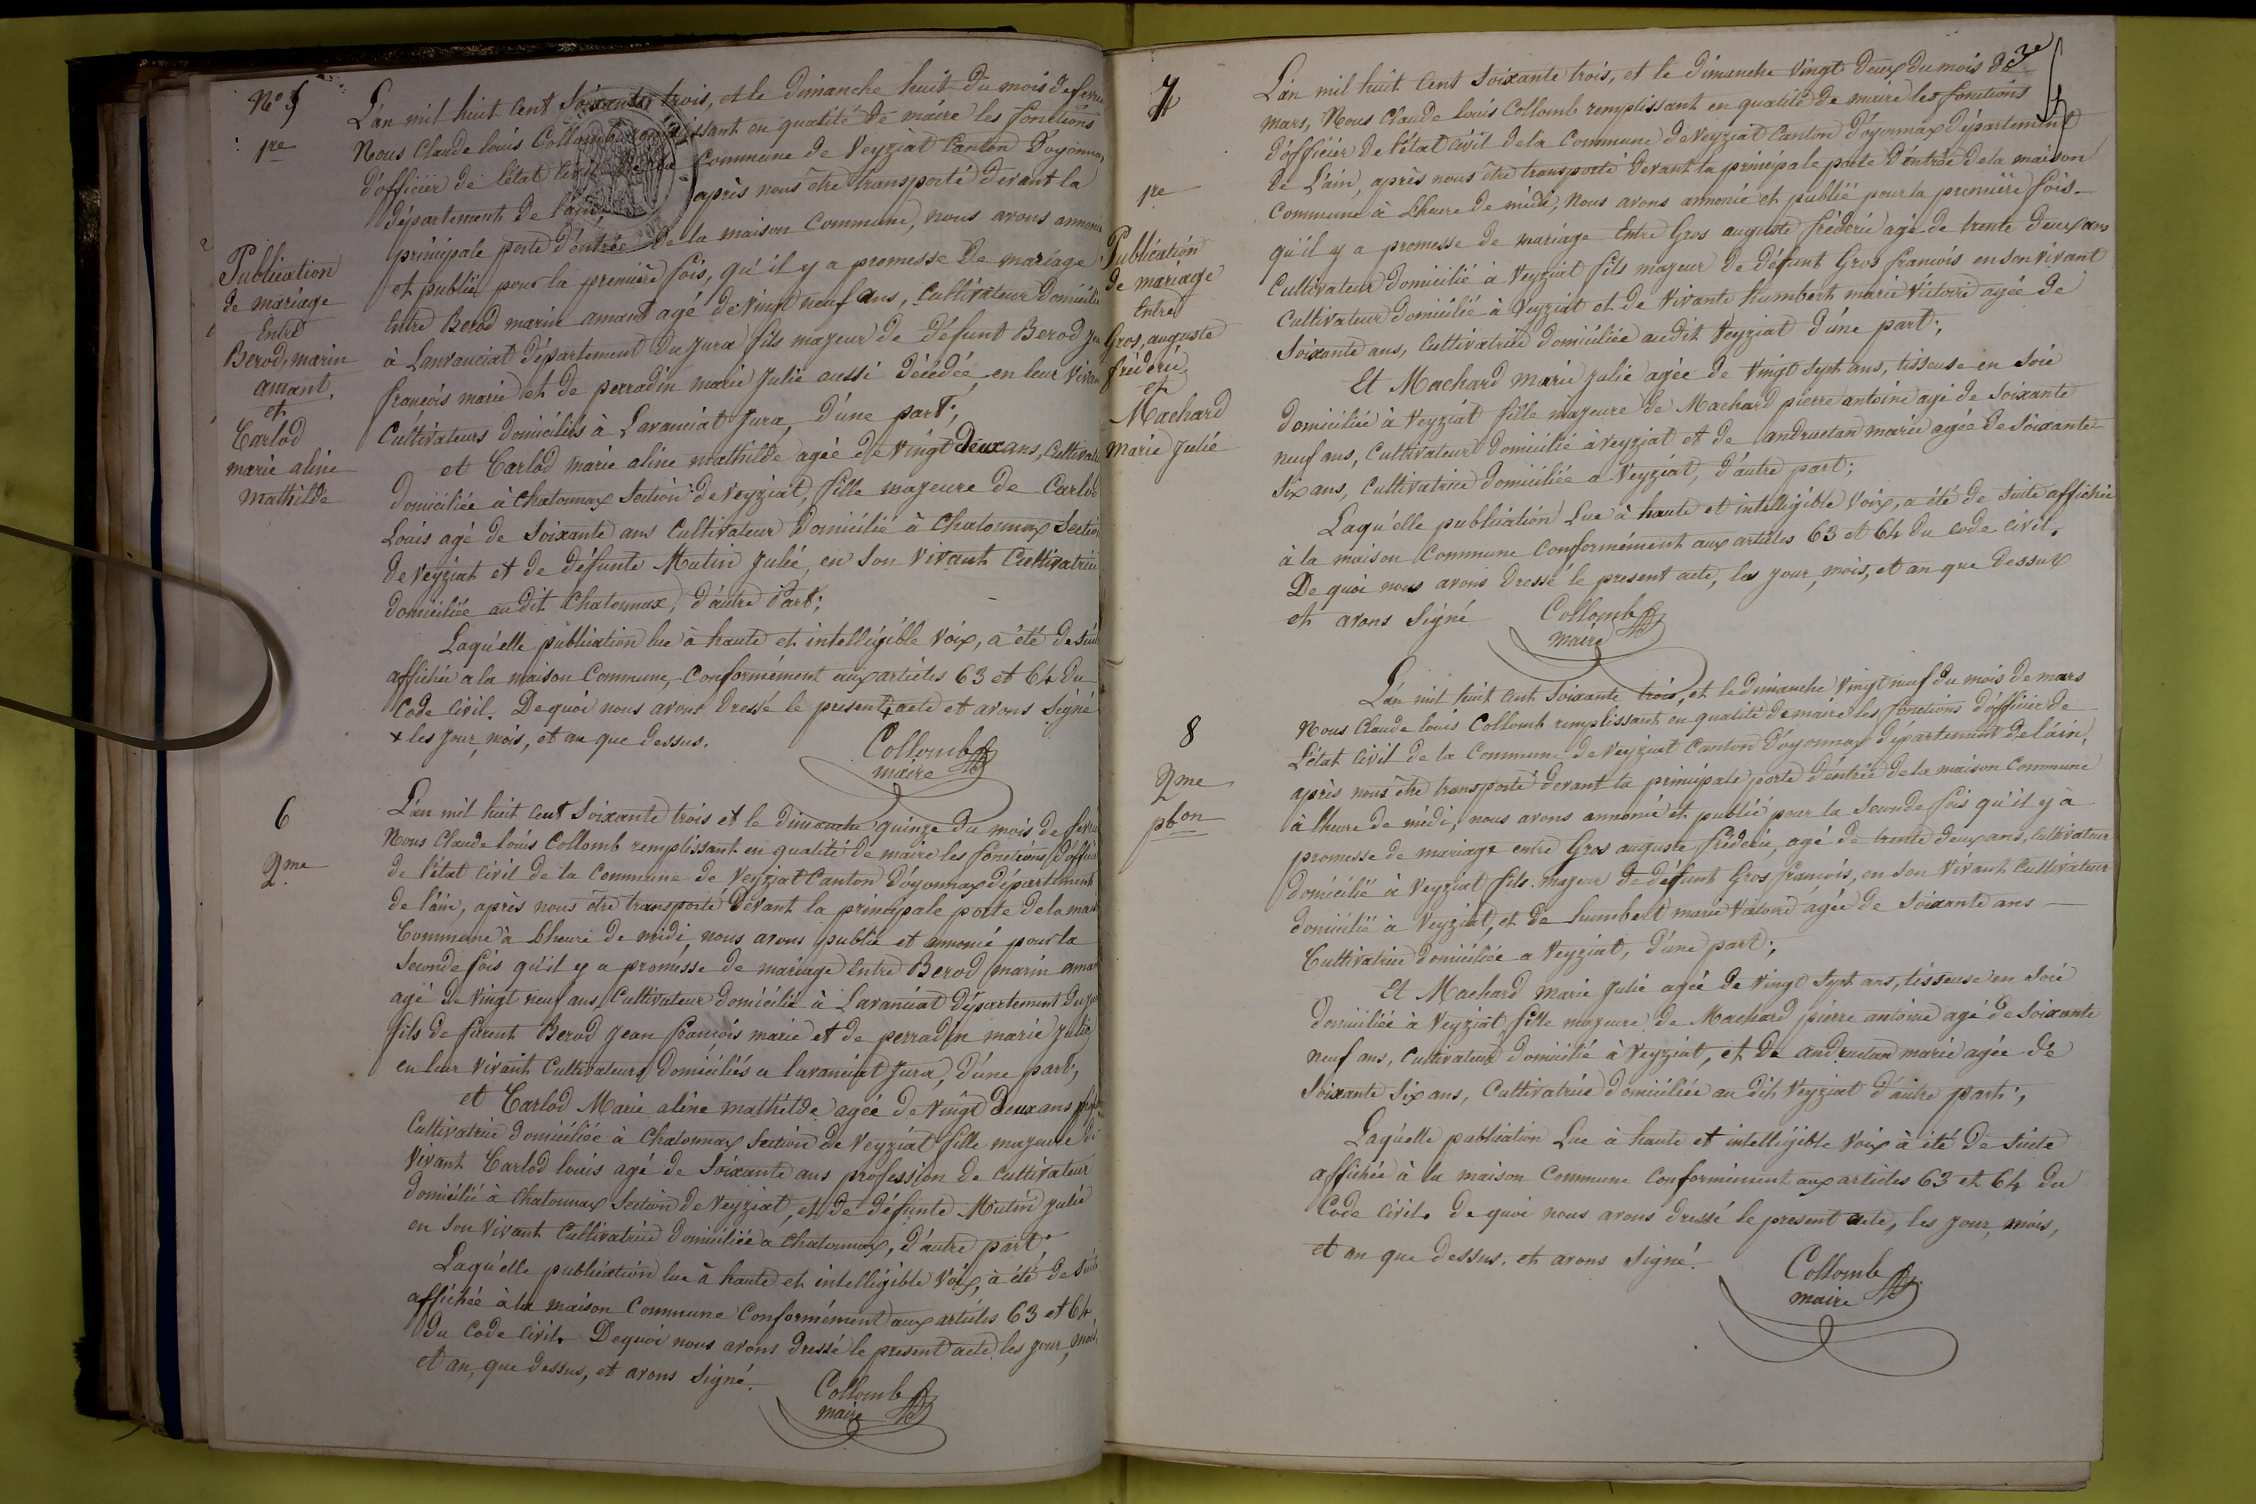 No 5
1re
Publication
de mariage
Entre
Berod, marin
amant,
et
Carlod
marie aline
mathilde
L'an mil huit cent soixante trois, et le dimanche huit du mois de fevri
Nous Claude louis Collomb remplissant en qualité de maire les fonctions
d'officier de l'état civil de la Commune de Veyziat Canton d'oyonnax
département de l'ain, après nous être transporté devant la
principale porte d'entrée de la maison Commune, nous avons annonc
et publié pour la première fois, qu'il y a promesse de mariage
Entre Berod marin amant agé de vingt neuf ans, Cultivateur domicilié
à Lavanciat département du Jura fils majeur de défunt Berod Jea
françois marie et de perradin marie Julie aussi décédée, en leur vivan
Cultivateurs domiciliés à Lavanciat Jura, d'une part;
et Carlod Marie aline mathilde agée de vingt deux ans, Cultivatr
domiciliée à Chatonnax Section de Veyziat, fille majeure de Carlod
Louis agé de Soixante ans Cultivateur domicilié à Chatonnax Sectio
de Veyziat et de défunte Mutin Julie, en Son vivant Cultivatrice
domiciliée au dit Chatonnax, d'autre part;
Laqu'elle publication lue à haute et intelligible voix, a été de suit
affichée a la maison Commune, Conformément aux articles 63 et 64 du
Code Civil. De quoi nous avons dressé le present + acte et avons Signé
+ les Jour, mois, et an que dessus.
Collomb
maire
6
2me
L'an mil huit cent Soixante trois et le dimanche quinze du mois de fevri
Nous Claude louis Collomb remplissant en qualité de maire les fonctions d'offici
de l'état civil de la Commune de Veyziat Canton d'oyonnax département
de l'ain, après nous être transporté devant la principale porte de la mais
Commune à l'heure de midi, nous avons publié et annoncé pour la
Seconde fois qu'il y a promesse de mariage Entre Berod marin aman
agé de vingt neuf ans Cultivateur domicilié à Lavanciat Département du Ju
fils de furent Berod Jean françois marie et de perradin marie Julie
en leur vivant Cultivateurs domiciliés a lavanciat Jura, d'une part;
et Carlod Marie aline mathilde agée de vingt deux ans
Cultivatrice domiciliée à Chatonnax Section de Veyziat fille majeure de
vivant Carlod louis agé de Soixante ans profession de Cultivateur
domicilié à Chatonnax Section de Veyziat, et de défunte Mutin Julie
en Son vivant Cultivatrice domiciliée a Chatonnax, d'autre part
Laqu'elle publication lue à haute et intelligible voix, a été de suit
affichée à la maison Commune Conformément aux articles 63 et 64
du Code Civil. De quoi nous avons dressé le present acte les jour, mois
et an, que dessus, et avons Signé.
Collomb
maire
7
1re
Publication
de mariage
Entre
Gros, auguste
fréderic
et
Machard
Marie Julie
L'an mil huit cent Soixante trois, et le dimanche vingt deux du mois de
mars, Nous Claude louis Collomb remplissant en qualité de maire les fonctions
d'officier de l'état civil de la Commune de Veyziat Canton d'oyonnax département
de L'ain, après nous être transporté devant la principale porte d'entrée de la maison
Commune à L'heure de midi, nous avons annoncé et publié pour la première fois
qu'il y a promesse de mariage Entre Gros auguste fréderic agé de trente deux ans
Cultivateur domicilié à Veyziat fils majeur de défunt Gros francois en son vivant
Cultivateur domicilié à Veyziat et de Vivante humbert marie Victoire agée de
Soixante ans, Cultivatrice domiciliée au dit Veyziat d'une part;
Et Machard Marie julie agée de Vingt Sept ans, tisseuse en Soie
domiciliée à Veyziat fille majeure de Machard pierre antoine agé de Soixante
neuf ans, Cultivateur domicilié à veyziat et de andruetan marie agée de Soixante
Six ans, Cultivatrice domiciliée a Veyziat, d'autre part;
Laqu'elle publication Lue à haute et intelligible Voix, a été de Suite affichée
à la maison Commune Conformément aux articles 63 et 64 du code civil.
De quoi nous avons dressé le present acte, les jour, mois, et an que dessus
et avons Signé
Collomb
maire
8
2me
pbon
L'an mil huit cent Soixante trois, et le dimanche Vingt neuf du mois de mars
Nous Claude louis Collomb remplissant en qualité de maire les fonctions d'officier de
L'état Civil de la Commune de Veyziat Canton d'oyonnax département de l'ain,
après nous être transporté devant la principale porte d'entrée de la maison Commune
à l'heure de midi, nous avons annoncé et publié pour la Seconde fois qu'il y a
promesse de mariage entre Gros auguste fréderic, agé de trente deux ans, Cultivateur
domicilié à Veyziat fils majeur de défunt Gros francois, en son Vivant Cultivateur
domicilié à Veyziat, et de humbert marie Victoire agée de Soixante ans
Cultivatrice domiciliée a Veyziat, d'une part;
Et Machard Marie Julie agée de Vingt Sept ans, tisseuse en Soie
domiciliée à Veyziat fille majeure de Machard pierre antoine agé de Soixante
neuf ans, Cultivateur domicilié à Veyziat, et de andruetan marie agée de
Soixante Six ans, Cultivatrice domiciliée au dit Veyziat d'autre part;
Laqu'elle publication Lue à haute et intelligible Voix à été de Suite
affichée à la maison Commune Conformément aux articles 63 et 64 du
Code Civil. de quoi nous avons dressé le present acte, les jour, mois,
et an que dessus. et avons Signé.
Collomb
maire